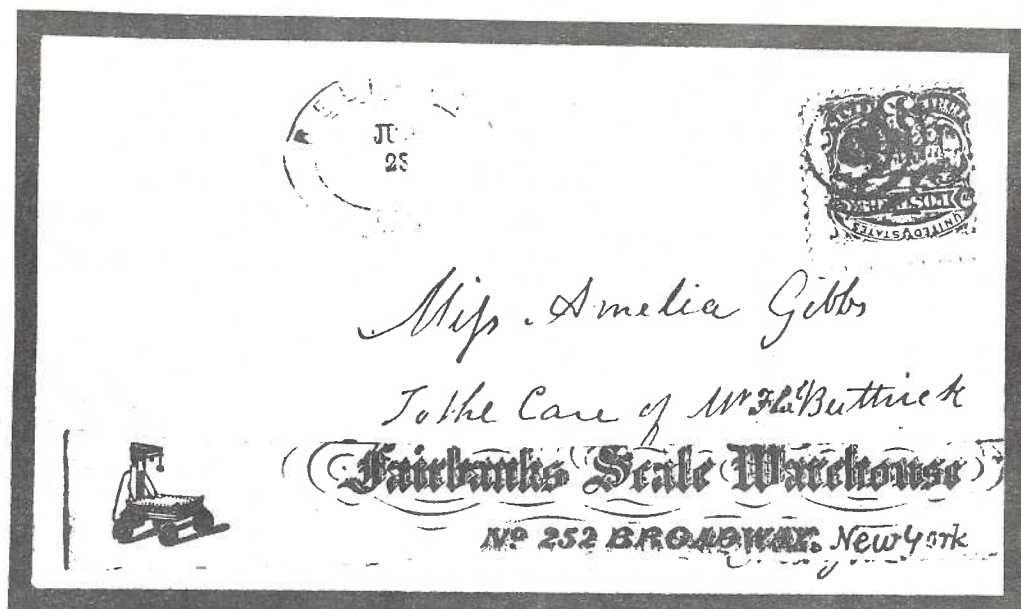 JU
23
POSTAGE
UNITED STATES
Miss Amelia Gibbs
To the Care of Mr Buttrick
Fairbanks Scale Warehouse
No 252 BROADWAY. New York